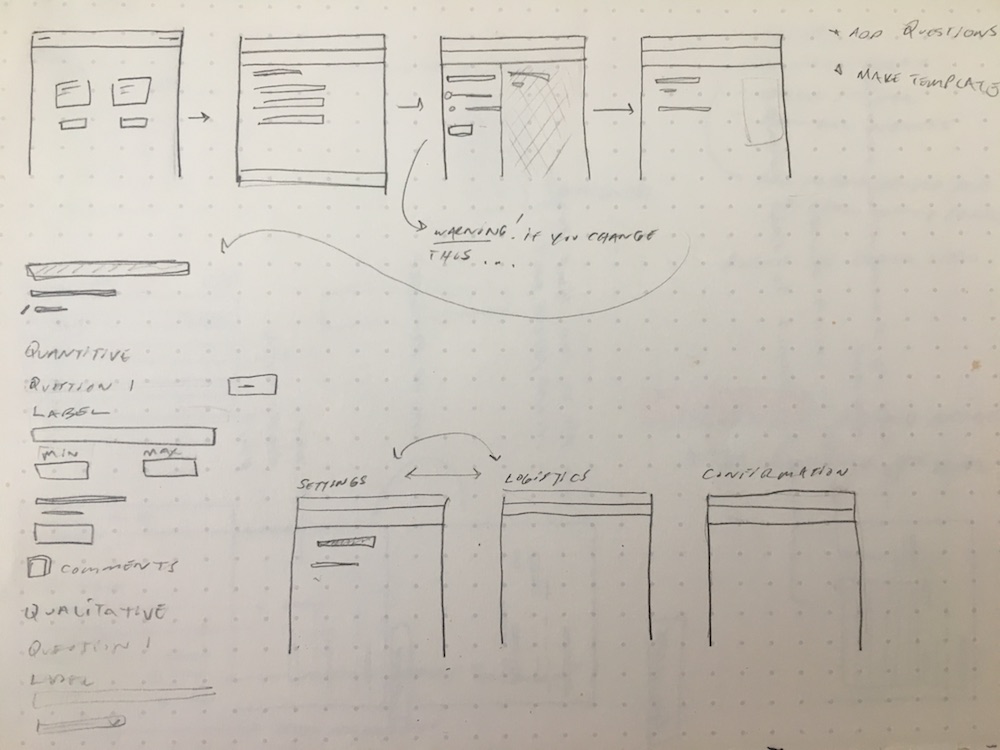 ADD QUESTIONS
MAKE TEMPLATE
WARNING! IF YOU CHANGE
THIS...
QUANTITIVE
QUESTION 1
LABEL
MIN MAX
COMMENTS
QUALITATIVE
QUESTION 1
LABEL
SETTINGS
LOGISTICS
CONFIRMATION